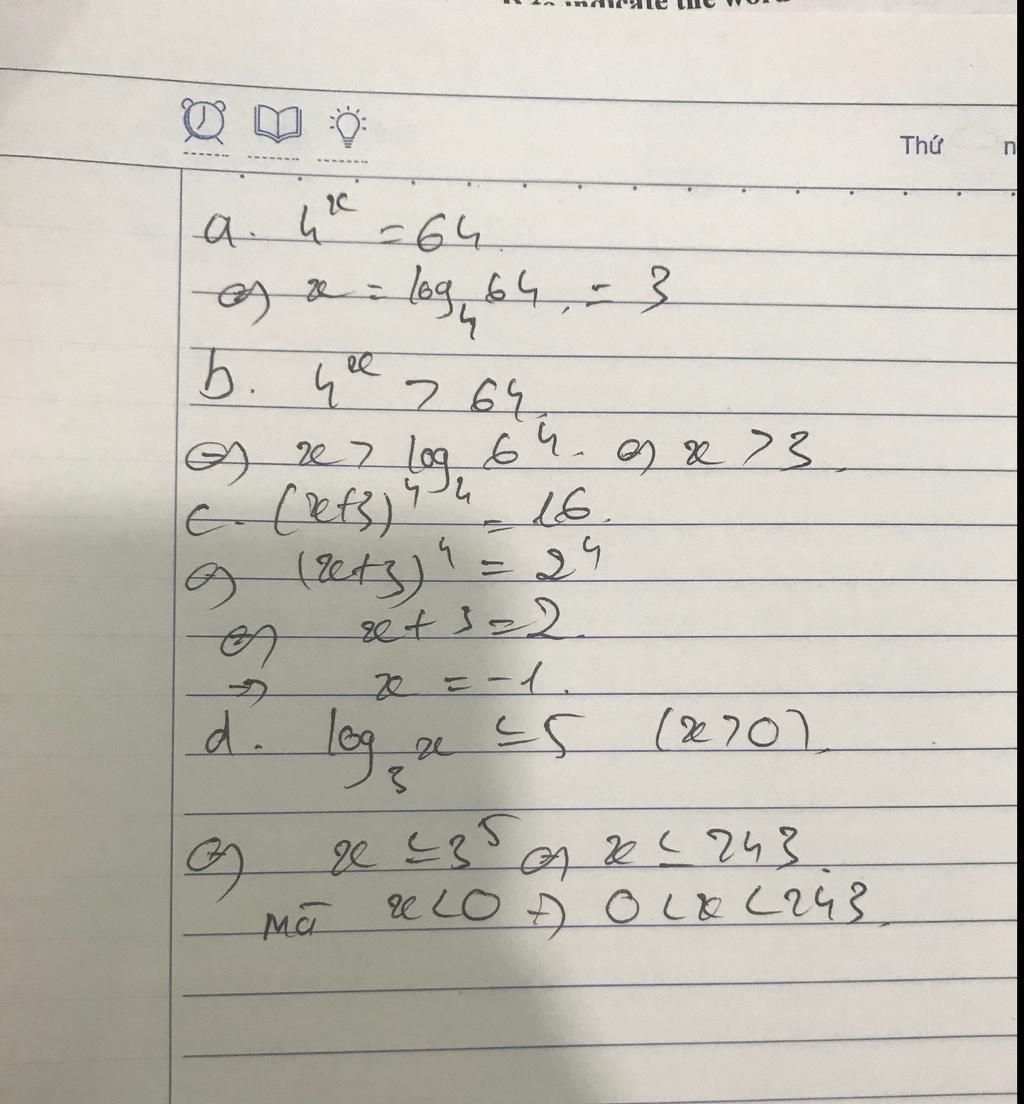 R to indicate the word
Thứ n
a. 4^x = 64.
⇔ x = log₄ 64. = 3
b. 4^x > 64.
⇔ x > log₄ 64. ⇔ x > 3.
c. (x+3)^4 = 16.
⇔ (x+3)^4 = 2^4
⇔ x + 3 = 2.
⇒ x = -1.
d. log₃ x ≤ 5 (x > 0).
⇔ x ≤ 3^5 ⇔ x ≤ 243.
mà x < 0 ⇒ 0 < x < 243.